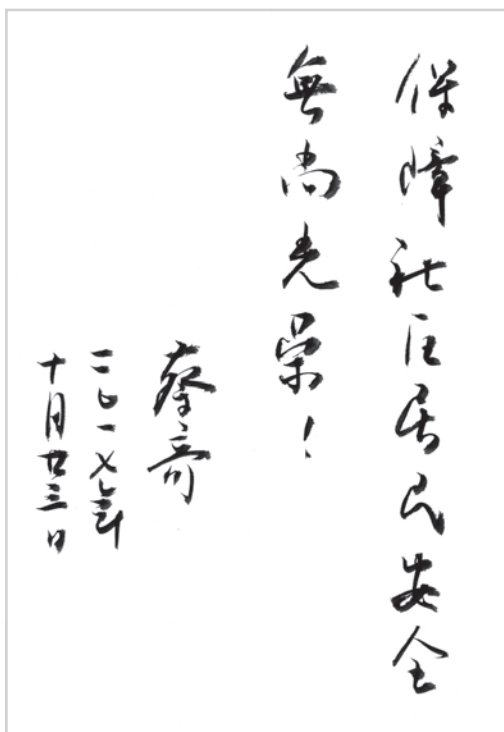 保障社区居民安全
無尚光荣！
蔡奇
二〇一七年
十月廿三日